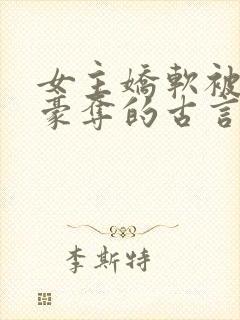 女主嬌軟被
豪奪的古言
李斯特